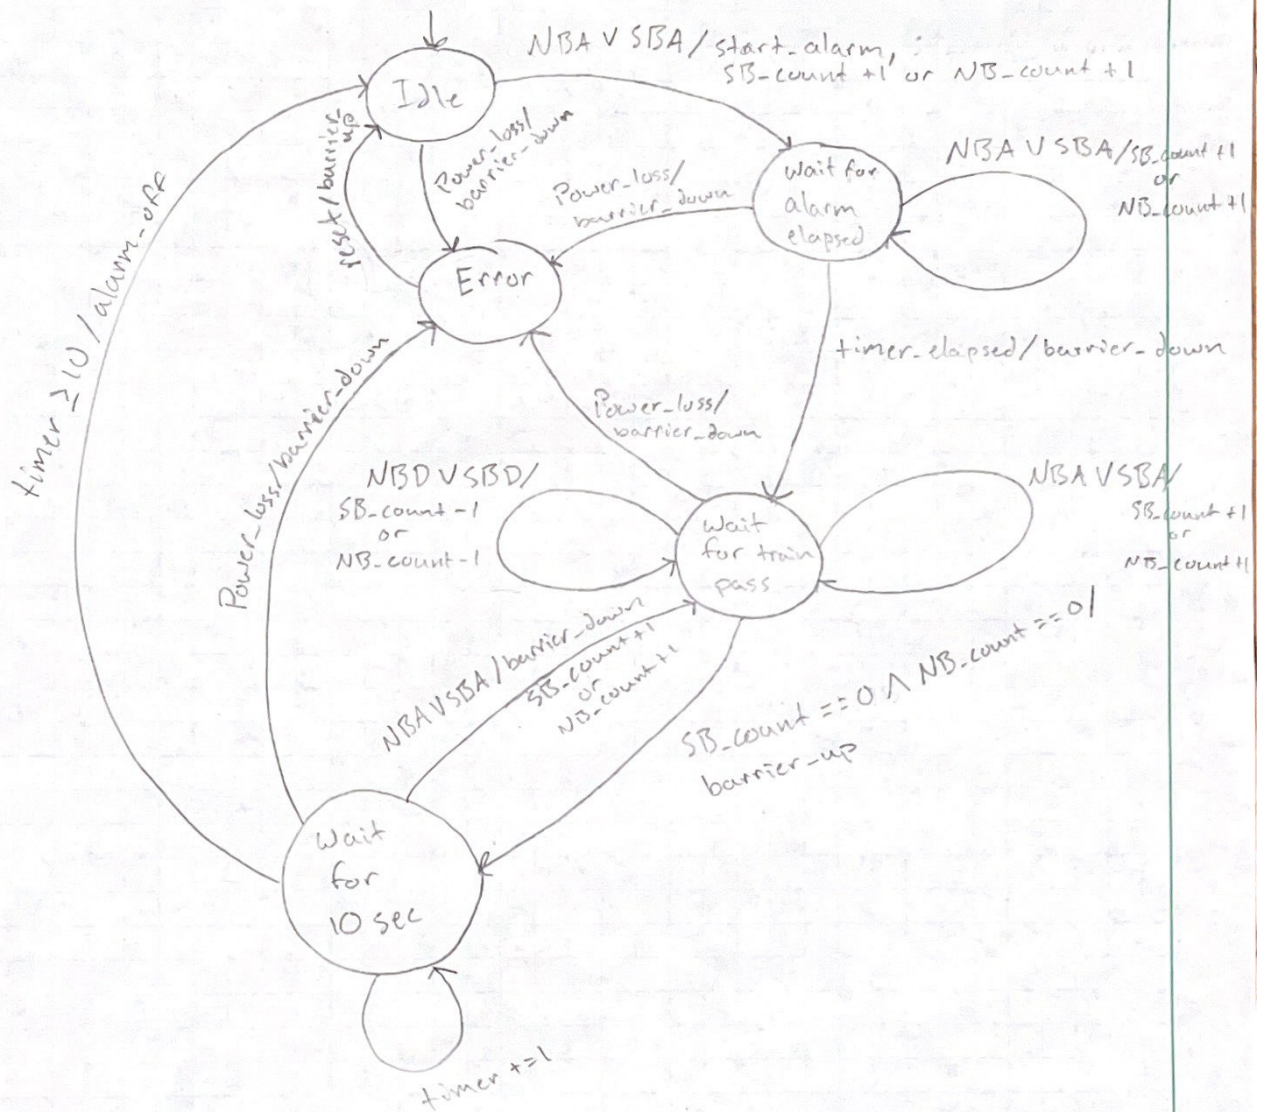 NBA V SBA / start_alarm,
SB_count +1 or NB_count +1
Idle
Power_loss/
barrier_down
reset/barrier_
up
Power_loss/
barrier_down
Wait for
alarm
elapsed
NBA V SBA/SB_count+1
or
NB_count+1
Error
timer ≥ 10 / alarm_off
timer_elapsed/barrier_down
Power_loss/barrier_down
Power_loss/
barrier_down
NBD V SBD/
SB_count-1
or
NB_count-1
Wait
for train
pass
NBA V SBA/
SB_count +1
or
NB_count+1
NBA V SBA/barrier_down
SB_count+1
or
NB_count+1
SB_count == 0 ∧ NB_count == 0/
barrier_up
Wait
for
10 sec
timer +=1